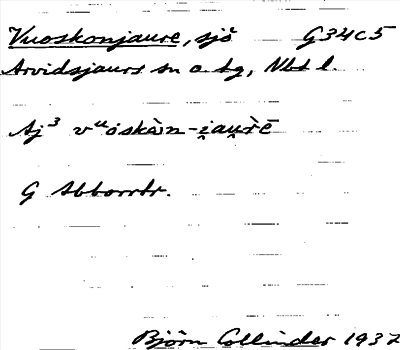 Vuoskonjaure, sjö G34c5
Arvidsjaurs sn o. tg, Nbt l.
Aj³ vᵘoskàn-i̯au̯rē
G Abborrtr.
Björn Collinder 1937